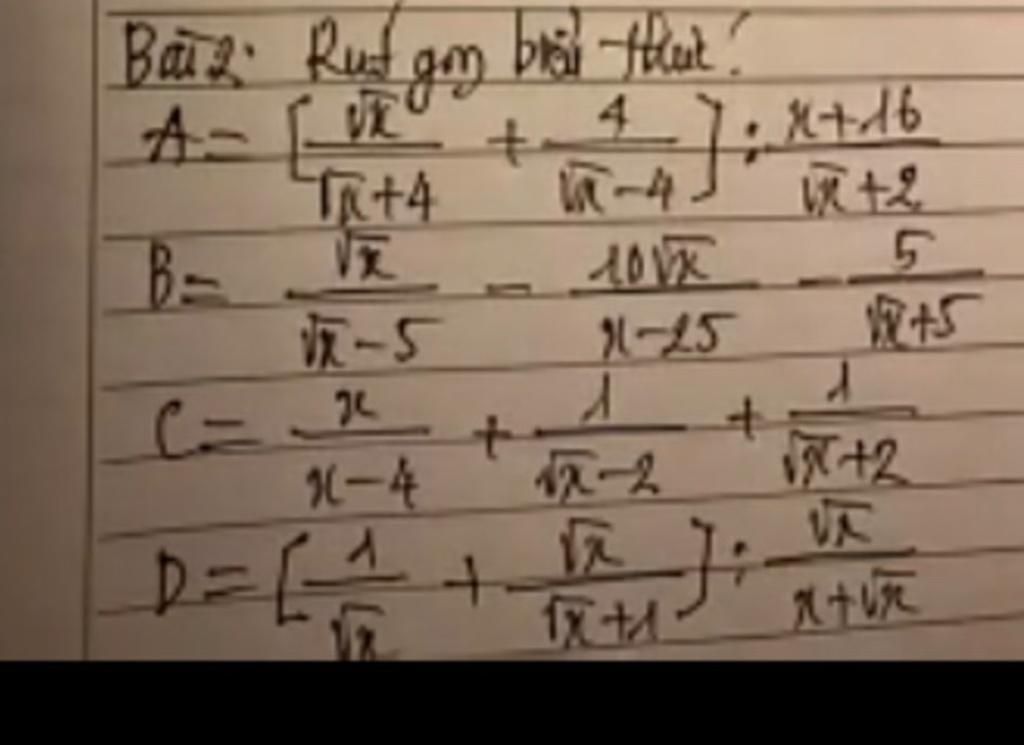 Bài 2: Rút gọn biểu thức:
A = [√x/(√x+4) + 4/(√x-4)] : (x+16)/(√x+2)
B = √x/(√x-5) - 10√x/(x-25) - 5/(√x+5)
C = x/(x-4) + 1/(√x-2) + 1/(√x+2)
D = [1/√x + √x/(√x+1)] : √x/(x+√x)